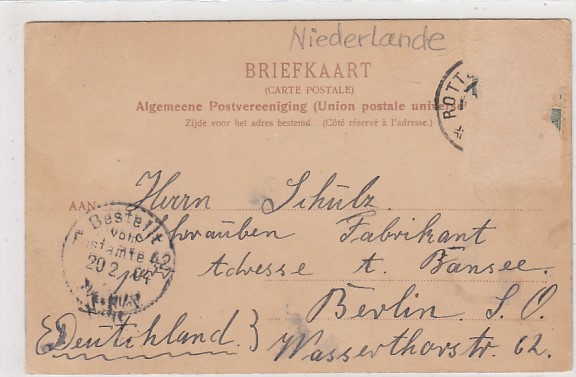 Niederlande
BRIEFKAART
(CARTE POSTALE)
Algemeene Postvereeniging (Union postale universe
Zijde voor het adres bestemd. (Côté réservé à l'adresse.)
ROTT
AAN
Herrn Schulz
Schrauben Fabrikant
Adresse A. Bansee.
Berlin. S. O.
Wasserthorstr. 62.
(Deutschland.)
Bestellt
vom
Postamte
20.2.04